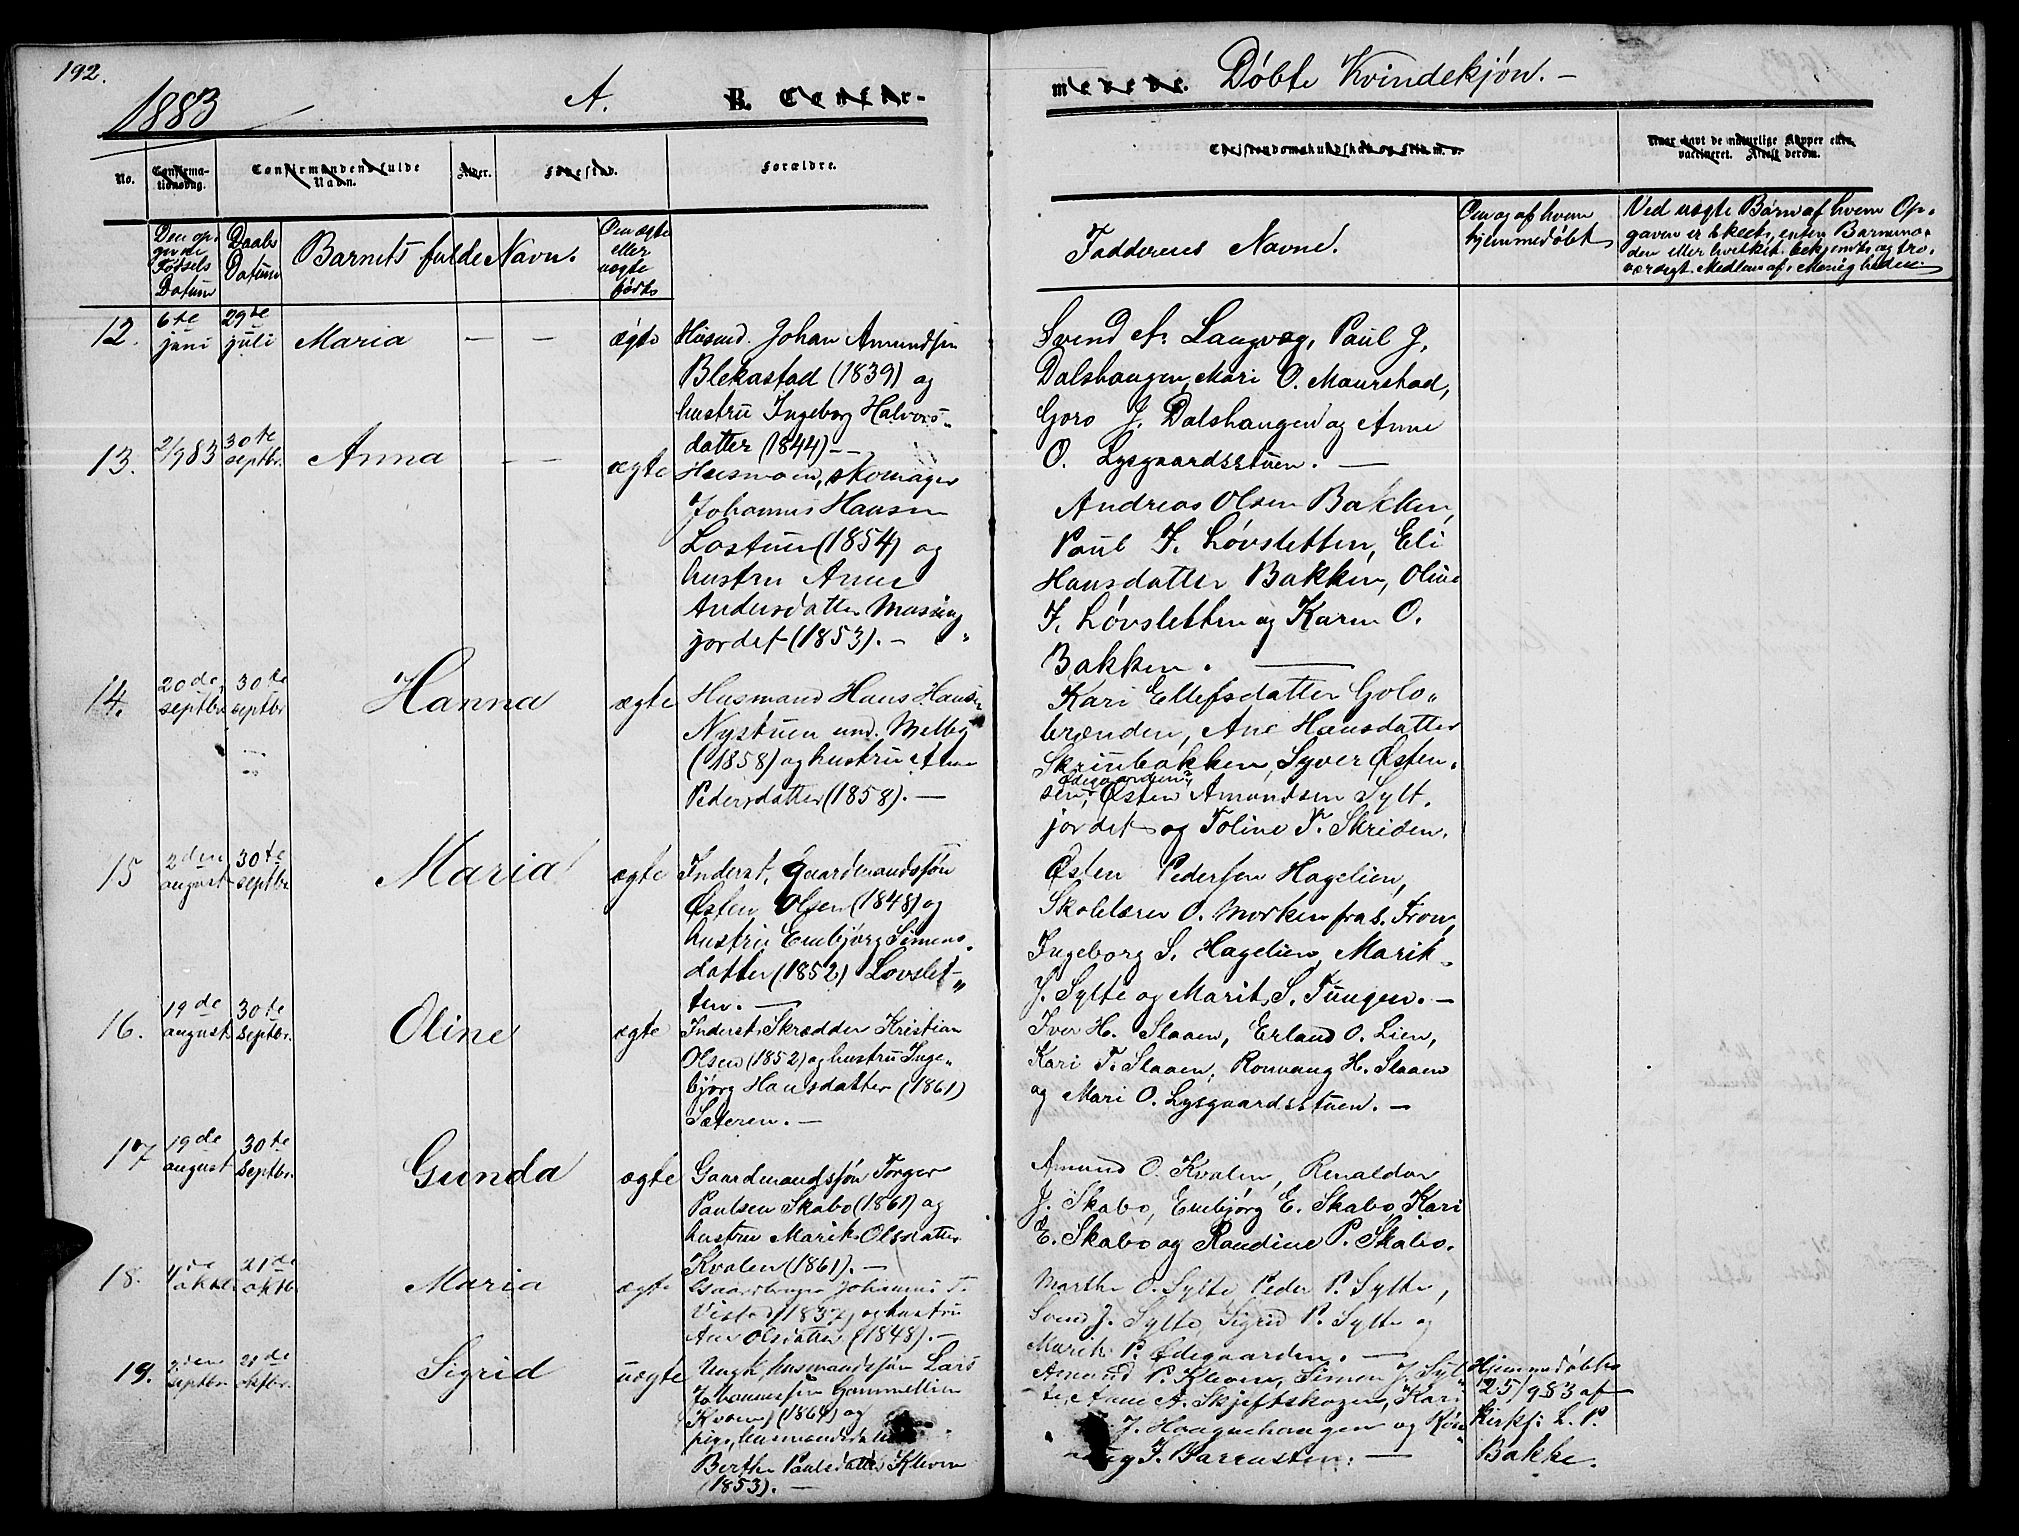 192.
1883
A.
B. Confir-
merede. Döbte Kvindekjön. -
No.
Confirma-
tionsdag.
Confirmandens fulde
Navn.
Alder.
Fødested.
Forældre.
Christendomskundskab og Flid m. v.
Naar havt de naturlige Kopper eller
vaccineret. Attest derom.
Den op-
givne
Födsels
Datum
Daabs
Datum
Barnets fulde Navn.
Om ægte
eller
uægte
födte
Faddernes Navne.
Om og af hvem
hjemmedøbt
Ved uægte Børn af hvem Op-
gaven er skeet, enten Barnemo-
den eller hvilket bekjendt og tro-
værdigt Medlem af Menigheden.
12. 6te juni 29de juli Maria - - ægte
Husmd. Johan Amundsen
Blekastad (1839) og
hustru Ingeborg Halvors-
datter (1844) -
Svend A. Langvæg, Paul J.
Dalshaugen, Mari O. Maurstad,
Goro J. Dalshaugen og Anne
O. Lysgaardsstuen. -
13. 2/9 83 30te septbr. Anna - - ægte
Husmann, skomager
Johannes Hansen
Lostuen (1854) og
hustru Anne
Andersdatter Musing
jordet (1853). -
Andreas Olsen Bakken,
Paul I. Lövsletten, Eli
Hansdatter Bakken, Oline
I. Lövsletten og Karen O.
Bakken. -
14. 20de septbr. 30te septbr Hanna ægte
Husmand Hans Hansen
Nystuen und. Melby
(1858) og hustru Ane
Pedersdatter (1858). -
Kari Ellefsdatter Golo-
brænden, Ane Hansdatter
Skriubakken, Syver Østen-
Ödegaarden,
sen, Østen Amundsen Sylt-
jordet og Toline T. Skriden.
15 2den august 30te septbr Maria ægte
Inderst, Gaardmandssøn
Østen Olsen (1848) og
hustru Embjörg Simens-
datter (1852) Lovslet-
ten. -
Østen Pedersen Hagelien,
Skolelærer O. Morken fra S. Fron,
Ingeborg S. Hagelien, Marit
J. Sylte og Marit S. Tungen. -
16. 19de august 30te Septbr. Oline ægte
Inderst, Skrædder Kristian
Olsen (1852) og hustru Inge-
björg Hansdatter (1861)
Sæteren. -
Iver H. Slaaen, Erland O. Lien,
Kari T. Slaaen, Ronnaug H. Slaaen
og Mari O. Lysgaardsstuen. -
17 19de august 30te Septbr. Gunda ægte
Gaardmandssön Torger
Paulsen Skabo (1861) og
hustru Marit Olsdatter
Kvalen (1861). -
Amund O. Kvalen, Renaldor
J. Skabo, Embjörg E. Skabo, Kari
E. Skabo og Randine P. Skabo.
18. 4de oktbr 21de oktbr. Maria ægte
Gaardbruger Johannes T.
Visted (1837) og hustru
Ane Olsdatter (1848). -
Marthe O. Sylte, Peder P. Sylte,
Svend J. Sylte, Sigrid P. Sylte og
Marit P. Ødegaarden. -
19. septbr. 21de oktbr. Sigrid uægte
Ungk., husmandssön Lars
Johannessen Gammellien
Kvam (1864) og
pige, husmandsdatter
Berthe Paulsdatter Kleven
(1853). -
Amund P. Kleven, Simon J. Syl-
te, Anne A. Skjeftskogen, Kari
J. Haaguehaugen og Rön-
naug I. Barrusten. -
Hjemmedøbt
25/9 83 af
Kirksj. L. P.
Bakke.